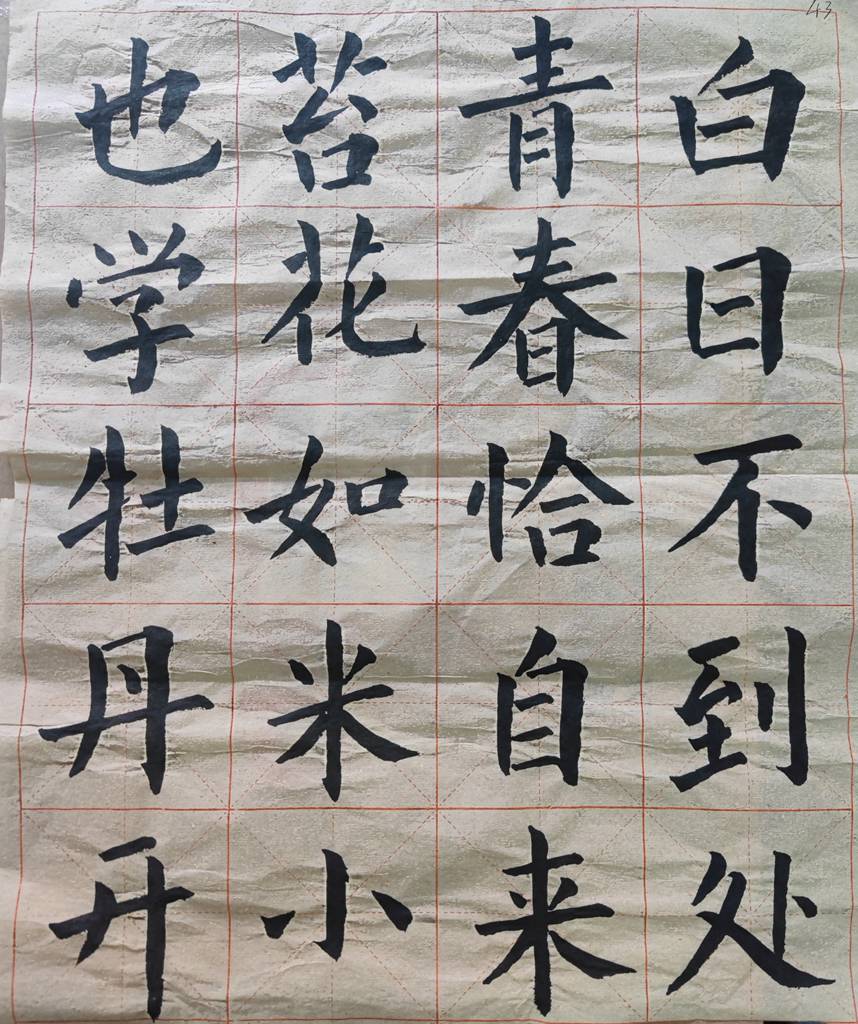 43
白日不到处
青春恰自来
苔花如米小
也学牡丹开